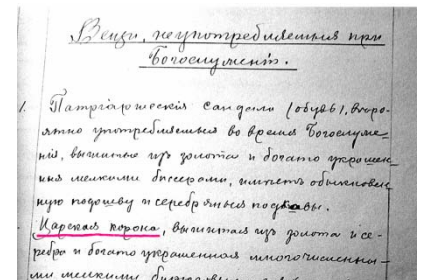 Вещи, неупотребляемыя при
Богослуженіи.
1. Патріаршескія сандали (обувь), вѣро-
ятно употребляемыя во время Богослуже-
нія, вышитые изъ золота и богато украшен-
ныя мелкими бисерами, имѣетъ обыкновен-
ную подошву и серебряныя подковы.
Царская корона, вышитая изъ золота и се-
ребра и богато украшенная многочисленны-
ми мелкими